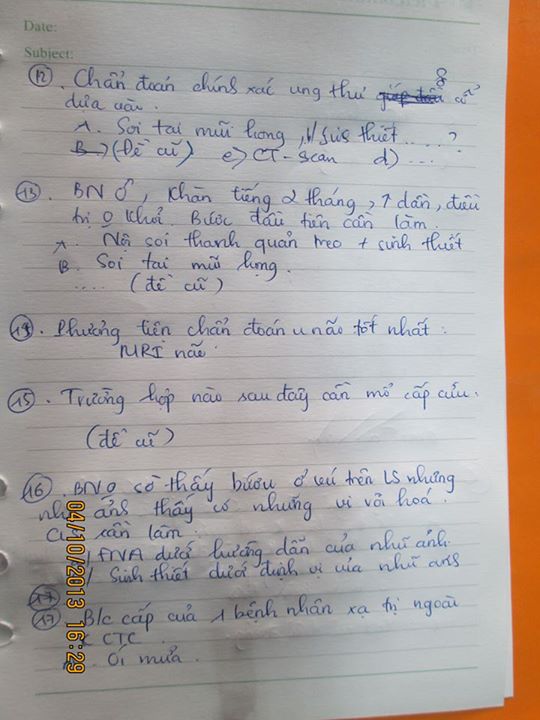 Date:
Subject:
12. Chẩn đoán chính xác ung thư cổ
dựa vào.
A. Soi tai mũi họng, sinh thiết ....?
B (Đề cũ) c) CT-Scan d) ...
13. BN ♂, khàn tiếng 2 tháng, ↑ dần, điều
trị 0 khỏi. Bước đầu tiên cần làm.
A. Nội soi thanh quản treo + sinh thiết
B. Soi tai mũi họng.
.... (đề cũ)
14. Phương tiện chẩn đoán u não tốt nhất:
MRI não.
15. Trường hợp nào sau đây cần mổ cấp cứu.
(đề cũ)
16. BN 0 sờ thấy bướu ở vú trên LS nhưng
nhũ ảnh thấy có những vi vôi hoá.
cần làm:
FNA dưới hướng dẫn của nhũ ảnh
/ Sinh thiết dưới định vị của nhũ ảnh
17
17. B/c cấp của 1 bệnh nhân xạ trị ngoài
K CTC.
Ói mửa.
04/10/2013 16:29